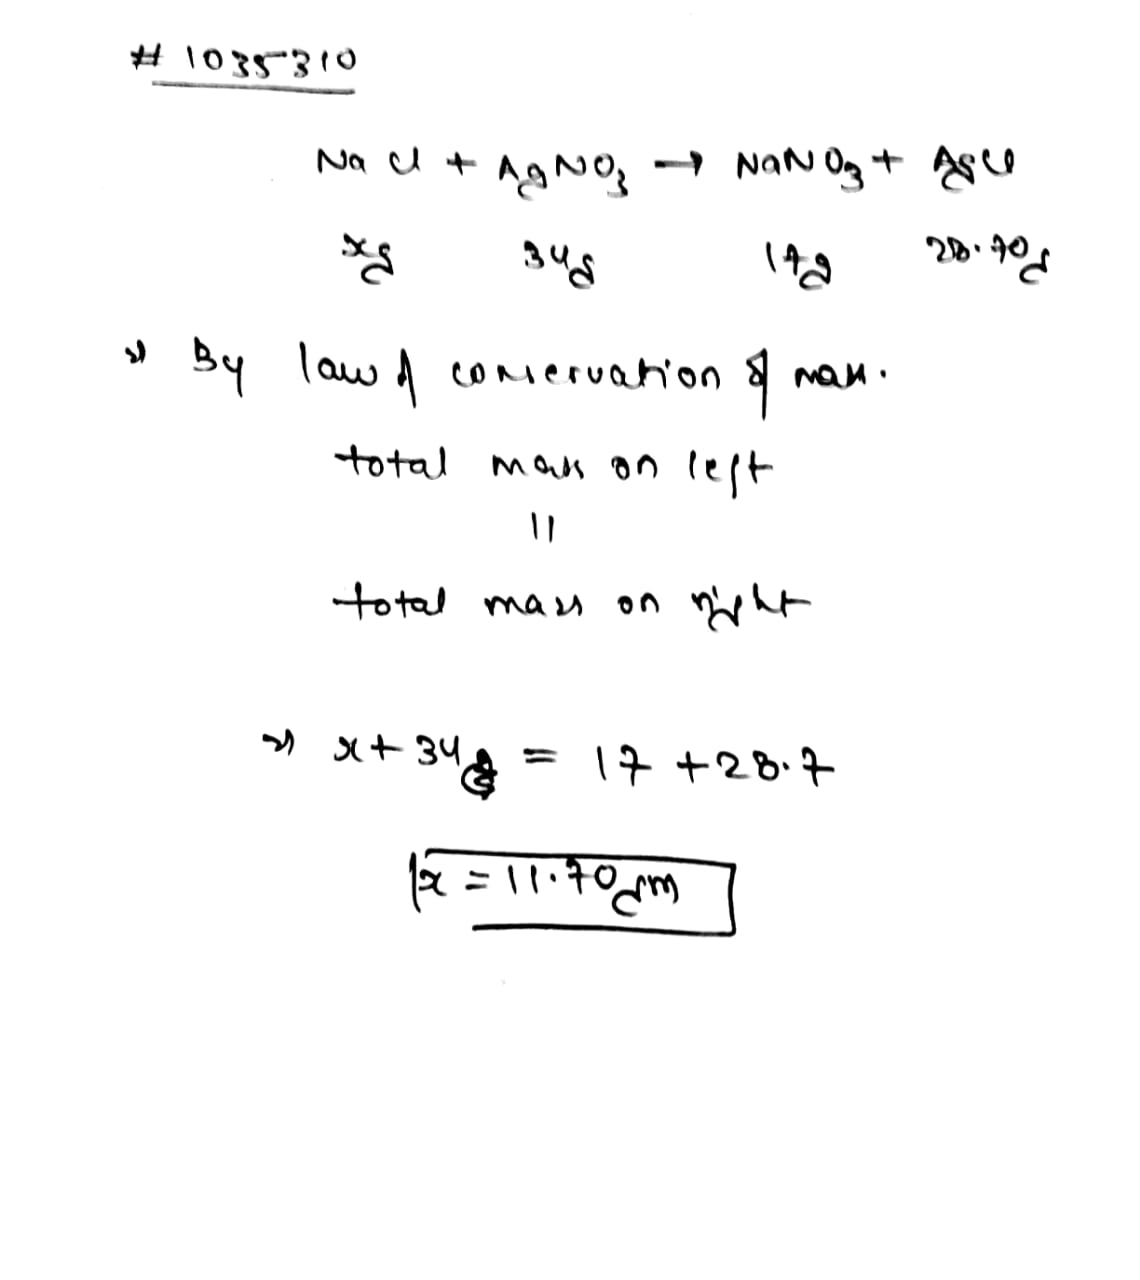 # 1035310
NaCl + AgNO3 → NaNO3 + AgCl
xg 34g 17g 28.70g
⇒ By law of conservation of mass.
total mass on left
||
total mass on right
⇒ x + 34g = 17 + 28.7
x = 11.70gm